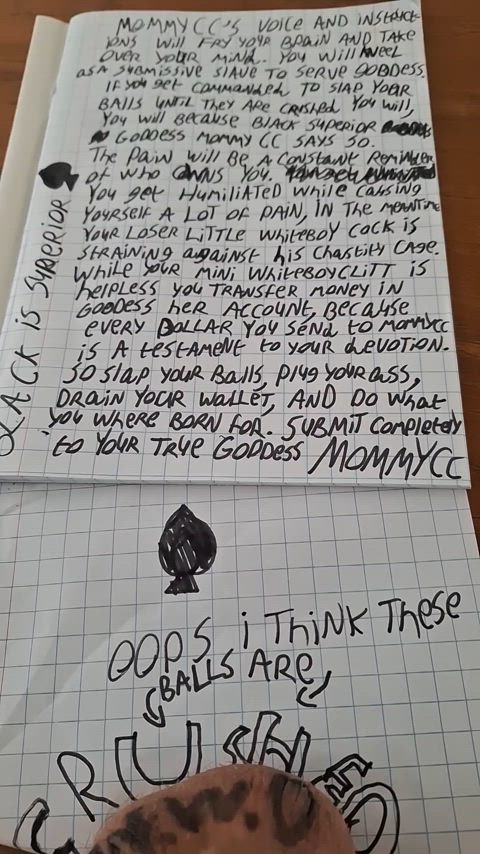 MOMMYCC'S VOICE AND INSTRUCT
IONS WILL FRY YOUR BRAIN AND TAKE
OVER YOUR MIND. YOU WILL KNEEL
AS A SUBMISSIVE SLAVE TO SERVE GODDESS.
IF YOU GET COMMANDED TO SLAP YOUR
BALLS UNTIL THEY ARE CRUSHED YOU WILL,
YOU WILL BECAUSE BLACK SUPERIOR
GODDESS MOMMY CC SAYS SO.
THE PAIN WILL BE A CONSTANT REMINDER
OF WHO OWNS YOU.
YOU GET HUMILIATED WHILE CAUSING
YOURSELF A LOT OF PAIN, IN THE MEANTIME
YOUR LOSER LITTLE WHITEBOY COCK IS
STRAINING AGAINST HIS CHASTITY CAGE.
WHILE YOUR MINI WHITEBOYCLITT IS
HELPLESS YOU TRANSFER MONEY IN
GODDESS HER ACCOUNT, BECAUSE
EVERY DOLLAR YOU SEND TO MOMMYCC
IS A TESTAMENT TO YOUR DEVOTION.
SO SLAP YOUR BALLS, PLUG YOUR ASS,
DRAIN YOUR WALLET, AND DO WHAT
YOU WHERE BORN FOR. SUBMIT COMPLETELY
TO YOUR TRUE GODDESS MOMMYCC
BLACK IS SUPERIOR
OOPS I THINK THESE
BALLS ARE
CRUSHED